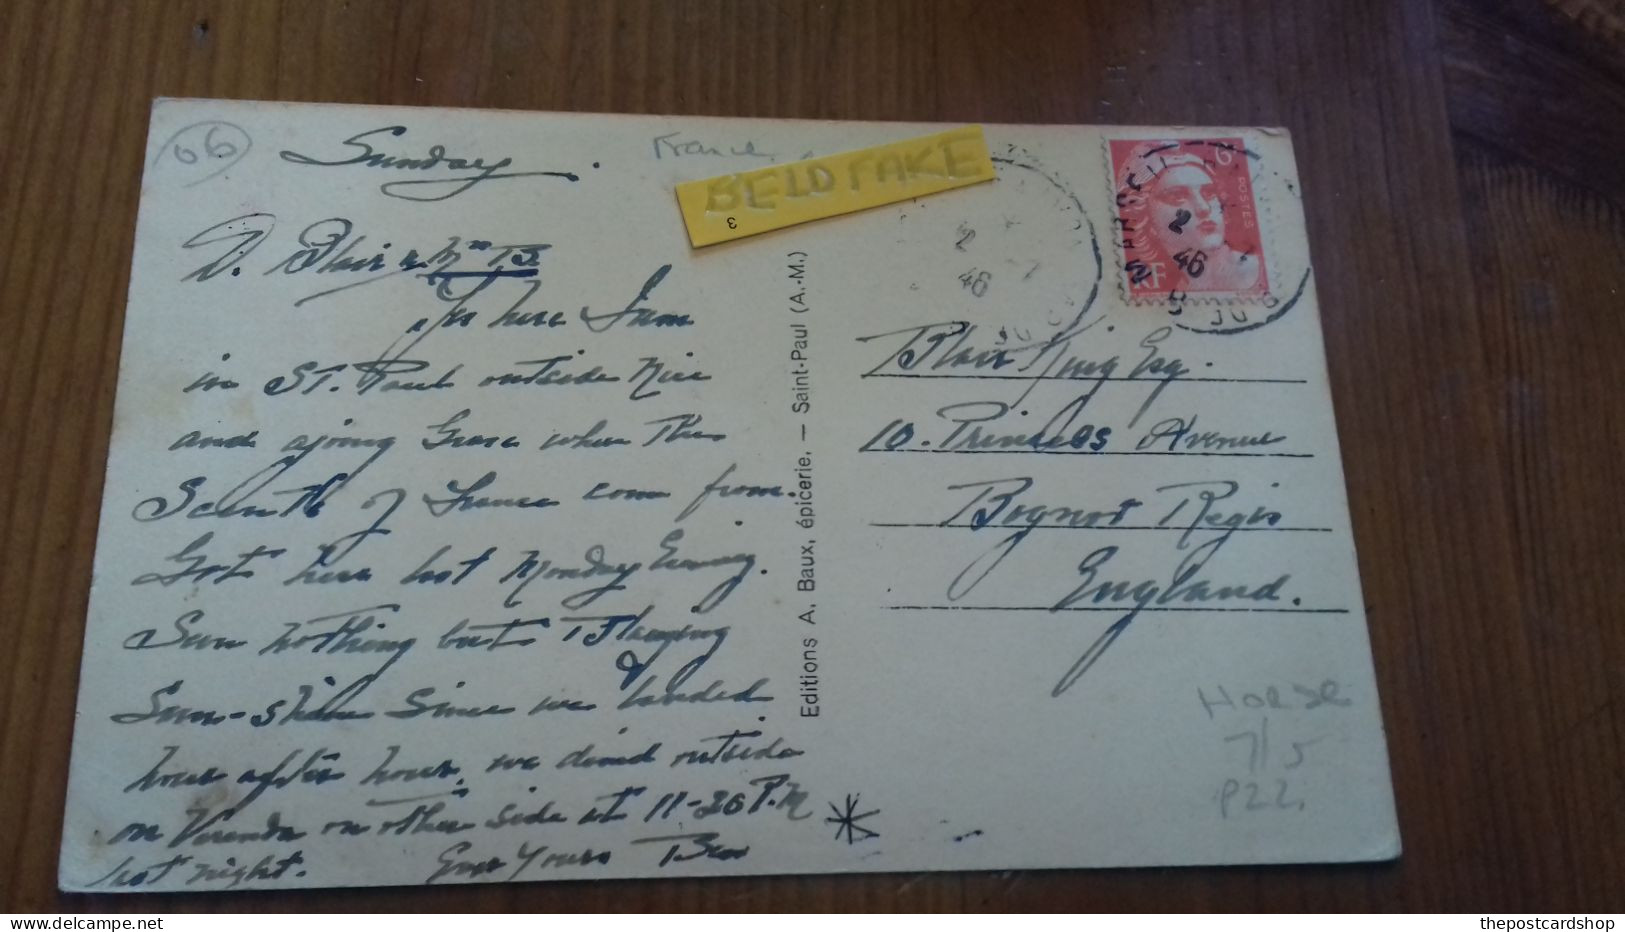 06
Sunday.
France
BELDRAKE
3
D. Blair & Mrs B.
So here I am
in St. Paul outside Nice
and ajoing Grase where the
Scenth of France come from.
Got here last Monday Evening.
Sun nothing but Flaming
Sun-shine since we landed
hour after hour, we dined outside
on Verenda on other side at 11-30 P.M
last night. Ever Yours Ben
Editions A. Baux, épicerie. — Saint-Paul (A.-M.)
2
46
MARSEILLE
2
46
6
POSTES
RF
Blair King Esq.
10. Princess Avenue
Bognor Regis
England.
HORSE
7/5
P22.
thepostcardshop